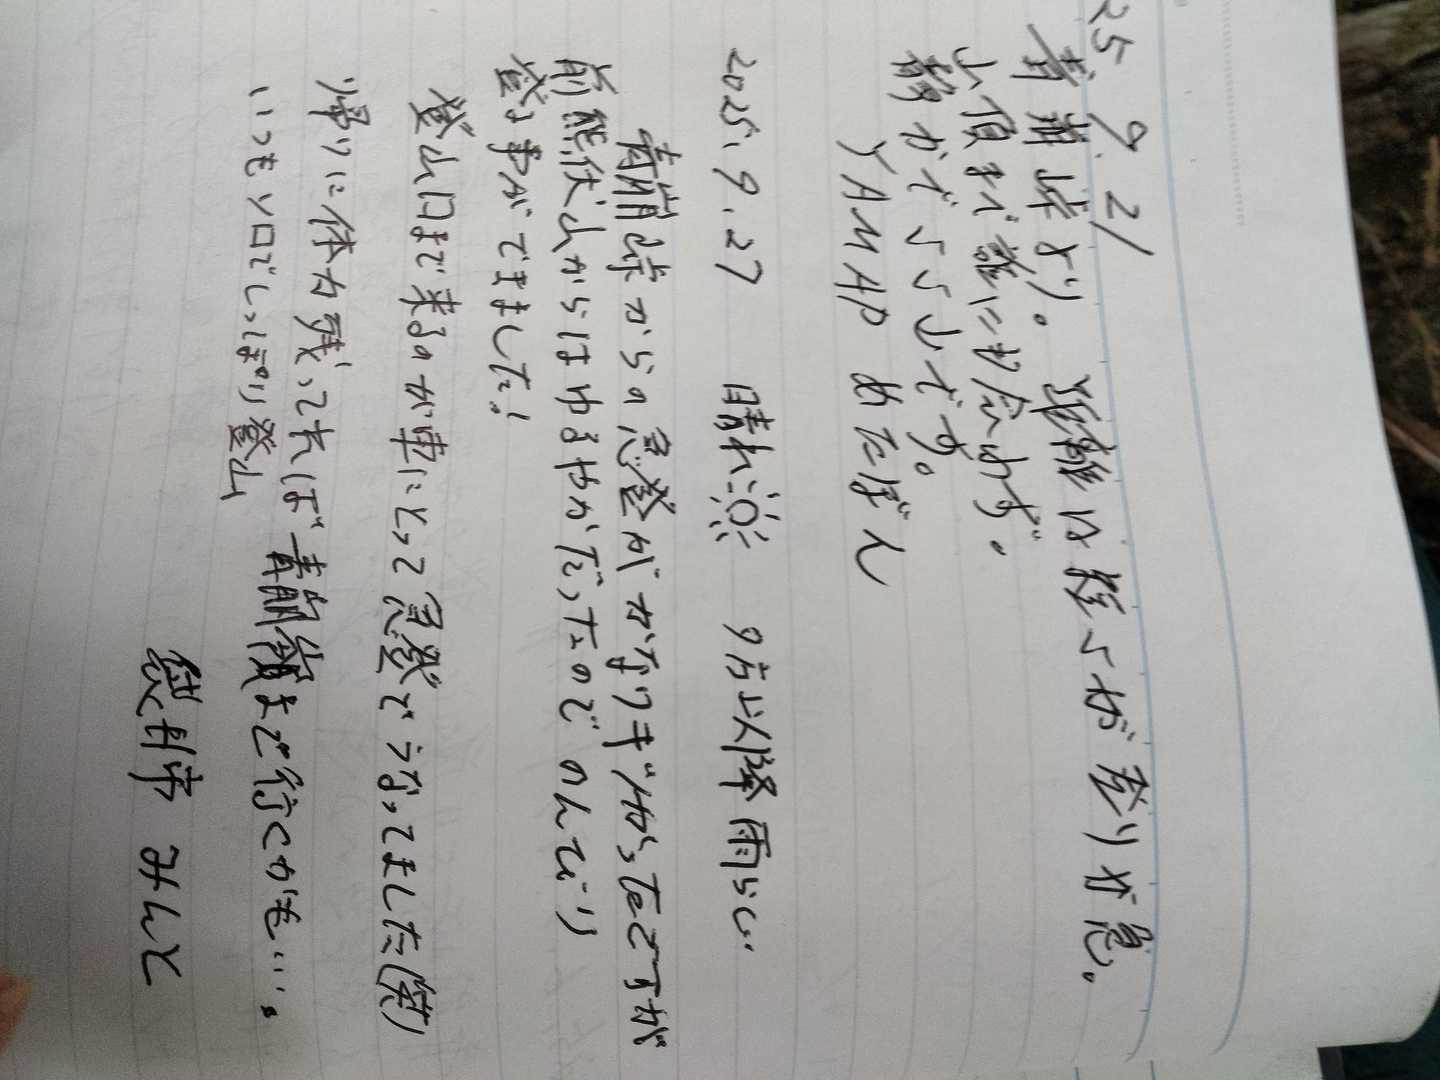 25 9.21
青崩峠より。 距離は短いが登りが急。
山頂まで誰にも会わず。
静かでいい山です。
YAMAP めたぼん
2025.9.27 晴れ 9時以降雨らしい
青崩峠からの急登がかなりキツかったですが
前熊伏山からはゆるやかだったのでのんびり
登る事ができました!
登山口まで来るのが車にとって急登でうなってました(笑)
帰りに体力残ってれば青崩嶺まで行くかも…。
いつもソロでしっぽり登山
袋井市 みんと